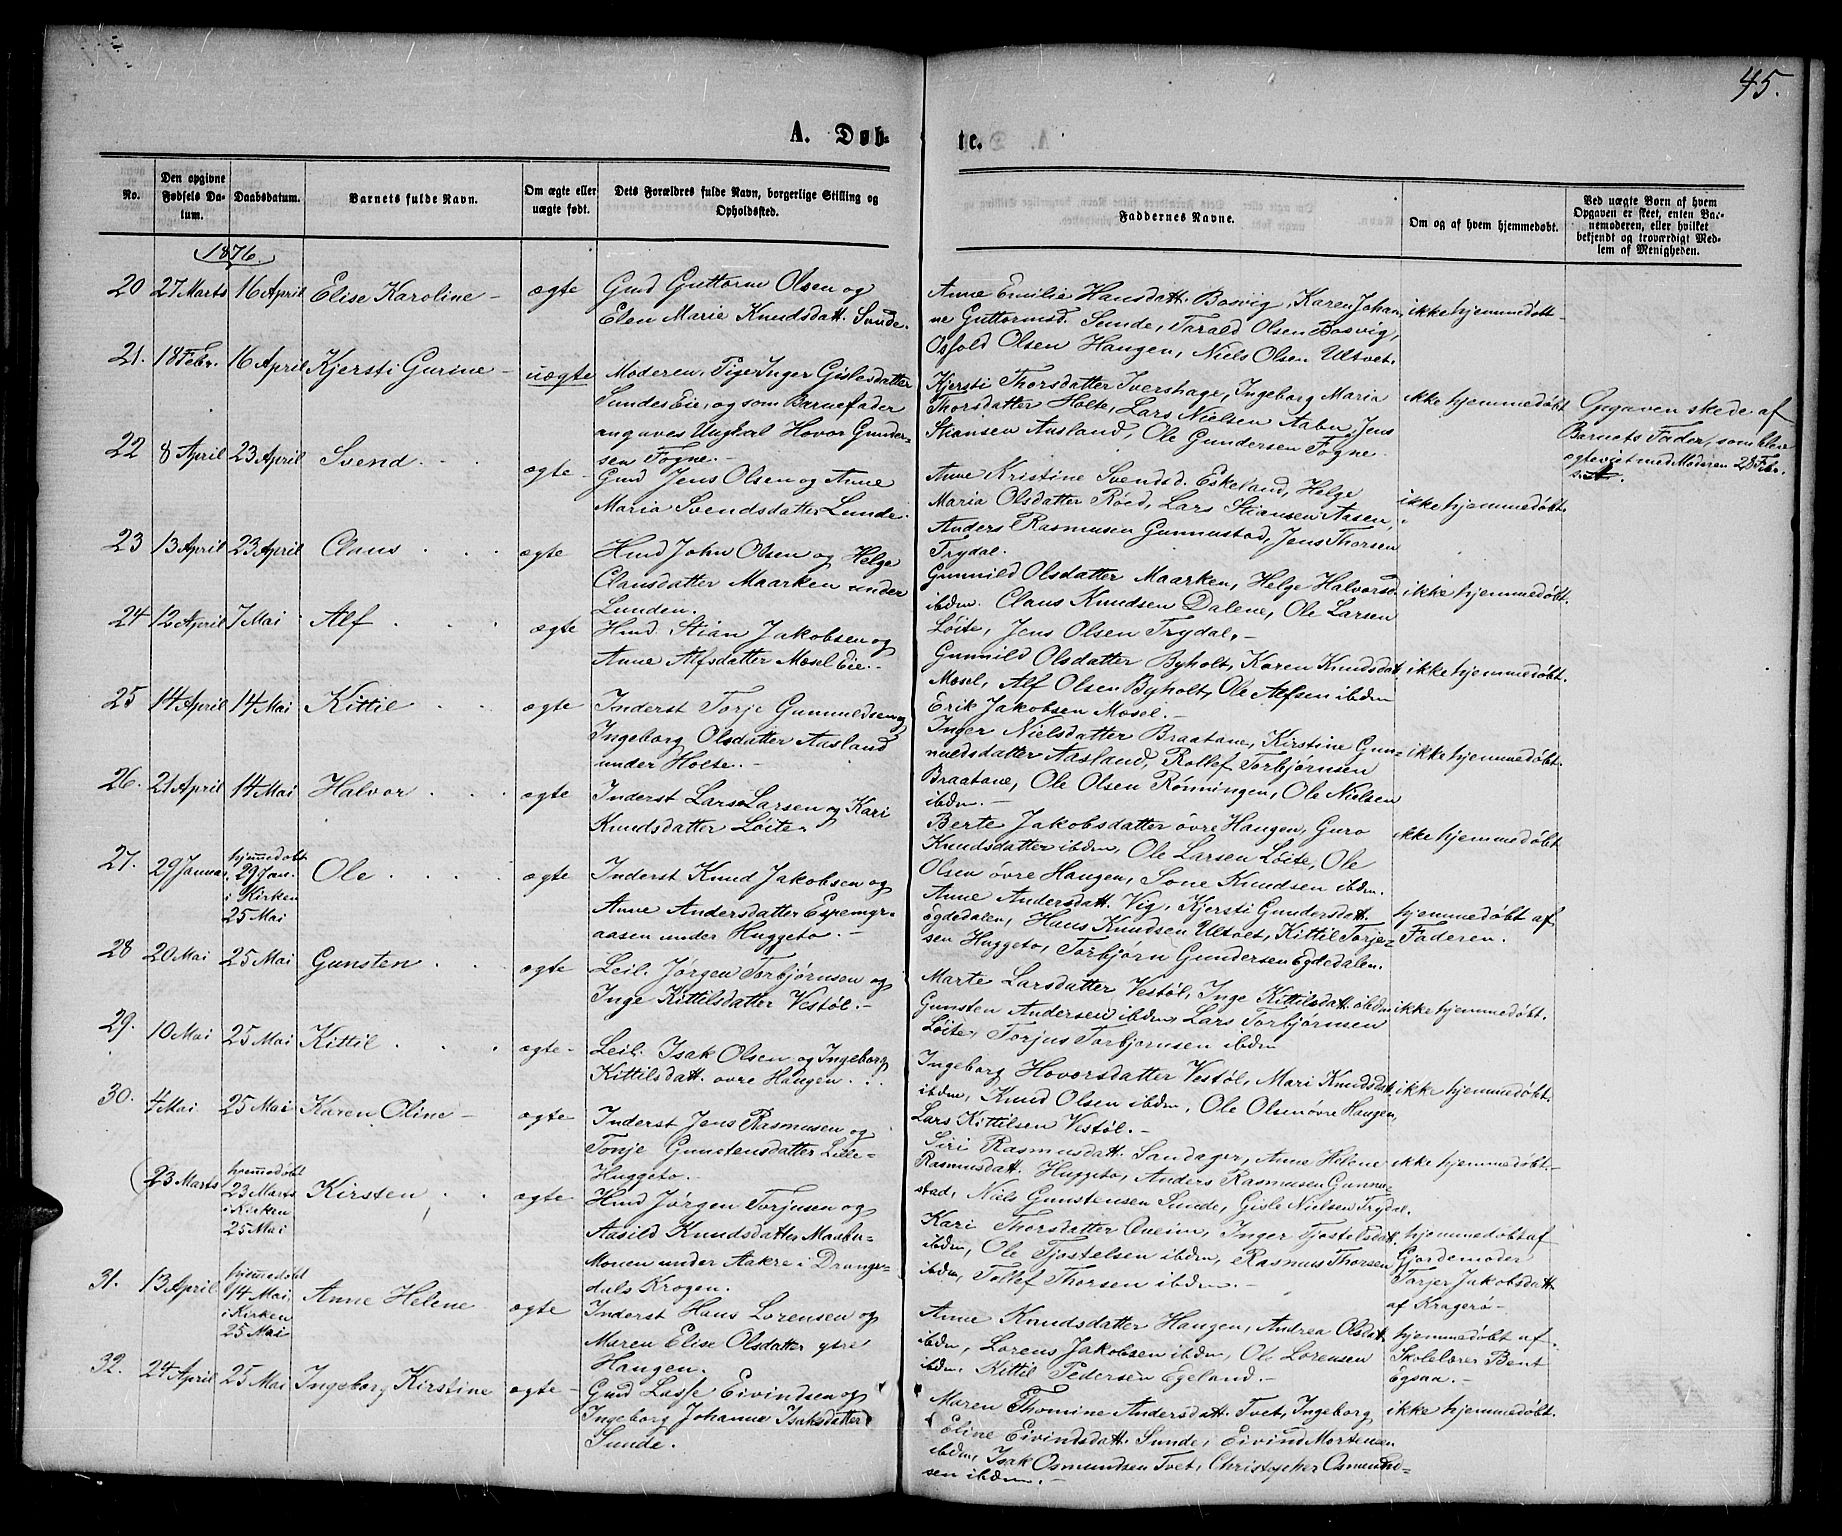 45.
A. Døb-
te.
No.
Den opgivne Fødsels Datum.
Daabsdatum.
Barnets fulde Navn.
Om ægte eller uægte født.
Dets Forældres fulde Navn, borgerlige Stilling og Opholdsted.
Faddernes Navne.
Om og af hvem hjemmedøbt.
Ved uægte Børn af hvem Opgaven er skeet, enten Barnemoderen, eller hvilket bekjendt og troværdigt Medlem af Menigheden.
1876.
20 27 Marts 16 April Elise Karoline - ægte
Gmd Guttorm Olsen og
Elen Marie Knudsdatt. Sunde.
Anne Emilie Hansdatt. Bosvig, Karen Johan
ne Guttormsd. Sunde, Tarald Olsen Bosvig,
Osfold Olsen Haugen, Niels Olsen Ultvet.
ikke hjemmedøbt -
21. 18 Febr. 16 April Kjersti Gurine - uægte
Moderen, Pige Inger Gislesdatter
Sundes Eie, og som Barnefader
angaves Ungkarl Hovor Gunder-
sen Fogne. -
Kjersti Thorsdatter Ivershage, Ingeborg Maria
Thorsdatter Holte, Lars Nielsen Aabn, Jens
Stiansen Aasland, Ole Gundersen Fogne.
ikke hjemmedøbt
Opgaven skede af
Barnets Fader, som blev
egteviet med Moderen 28 Febr.
s.A.
22 8 April 23 April Svend. ægte -
Gmd Jens Olsen og Anne
Maria Svendsdatter Lunde.
Anne Kristine Svendsd. Eskeland, Helge
Maria Olsdatter Røed, Lars Stiansen Aasen,
Anders Rasmusen Gunnustad, Jens Thorsen
Trydal.
ikke hjemmedøbt.
23 13 April 23 April Claus . . . ægte
Hmd John Olsen og Helge
Clausdatter Maarken under
Lunden.
Gunnild Olsdatter Maarken, Helge Halvorsd
ibdm. Claus Knudsen Dalene, Ole Larsen
Løite, Jens Olsen Trydal. -
ikke hjemmedøbt.
24 12 April 7 Mai Alf . . . ægte
Hmd. Stian Jakobsen og
Anne Alfsdatter Mosel Eie. -
Gunnild Olsdatter Byholt, Karen Knudsdat
Mosel, Alf Olsen Byholt, Ole Alfsen ibdm
Erik Jakobsen Mosel. -
ikke hjemmedøbt.
25 14 April 14 Mai Kittil . . ægte
Inderst Torje Gunnuldsen og
Ingeborg Olsdatter Aasland
under Holte. -
Inger Nielsdatter Braatane, Kirstine Gun-
nuldsdatter Aasland, Rollef Torbjørnsen
Braatane, Ole Olsen Rønningen, Ole Nielsen
ibdm. -
ikke hjemmedøbt.
26. 21 April 14 Mai Halvor . . . ægte
Inderst Lars Larsen og Kari
Knudsdatter Løite.
Berte Jakobsdatter øvre Haugen, Guro
Knudsdatter ibdm, Ole Larsen Løite, Ole
Olsen øvre Haugen, Sone Knudsen ibdm.
ikke hjemmedøbt
27. 29 Januar hjemmedøbt
29 Jan.
i Kirken
25 Mai
Ole . . . . ægte
Inderst Knud Jakobsen og
Anne Andersdatter Espemyr-
aasen under Huggeto. -
Anne Andersdatt. Vig, Kjersti Gundersdatt.
egdedalen, Hans Knudsen Ultvet, Kittil Torje-
sen Huggeto, Torbjørn Gundersen Egdedalen.
hjemmedøbt af
Faderen.
28 20 Mai 25 Mai Gunsten . . ægte
Leil. Jørgen Torbjørnsen og
Inge Kittilsdatter Vestøl. -
Marte Larsdatter Vestøl, Inge Kittilsdatt. ibdm
Gunsten Andersen ibdm, Lars Torbjørnsen
Løite, Torjus Torbjørnsen ibdm
ikke hjemmedøbt.
29. 10 Mai 25 Mai Kittil . . . ægte -
Leil. Isak Olsen og Ingeborg
Kittilsdatt. øvre Haugen . .
Ingeborg Hovorsdatter Vestøl, Mari Knudsdatt
ibdm, Knud Olsen ibdm, Ole Olsen øvre Haugen,
Lars Kittilsen Vestøl. -
ikke hjemmedøbt.
30. 4 Mai 25 Mai Karen Oline - ægte
Inderst Jens Rasmusen og
Tonje Gunstensdatter Lille-
Huggeto. -
Siri Rasmusdatt. Sandager, Anne Helene
Rasmusdatt. Huggeto, Anders Rasmusen Gunnu-
stad, Niels Gunstensen Sunde, Gisle Nielsen Trydal.
ikke hjemmedøbt -
(23 Marts hjemmedøbt
23 Marts
i Kirken
25 Mai
Kirsten . . ægte
Hmd Jørgen Torjusen og
Aasild Knudsdatter Maabu-
Monen under Aakre i Drange-
dals Krogen.
Kari Thorsdatter Qveim, Inger Tjostelsdatt.
ibdm, Ole Tjostelsen ibdm, Rasmus Thorsen
ibdm, Tollef Thorsen ibdm. -
hjemmedøbt af
Gjordemoder
Torjer Jakobsdatt.
af Kragerø -
31. 13 April hjemmedøbt
14 Mai,
i Kirken
25 Mai
Anne Helene ægte
Inderst Hans Lorensen og
Maren Elise Olsdatter ytre
Haugen.
Anne Knudsdatter Haugen, Andrea Olsdatt
ibdm, Lorens Jakobsen ibdm, Ole Lorensen
ibdm. Kittil Pedersen Egeland. -
hjemmedøbt af
Skolelærer Bent
Egsaa. -
32. 24 April 25 Mai Ingeborg Kirstine ægte -
Gmd Lasse Eivindsen og
Ingeborg Johanne Isaksdatter
Sunde.
Maren Thomine Andersdatt. Tvet, Ingeborg
Eline Eivindsdatt. Sunde, Eivind Mortensen
ibdm, Isak Osmundsen Tvet, Christopher Osmund-
sen ibdm. -
ikke hjemmedøbt.